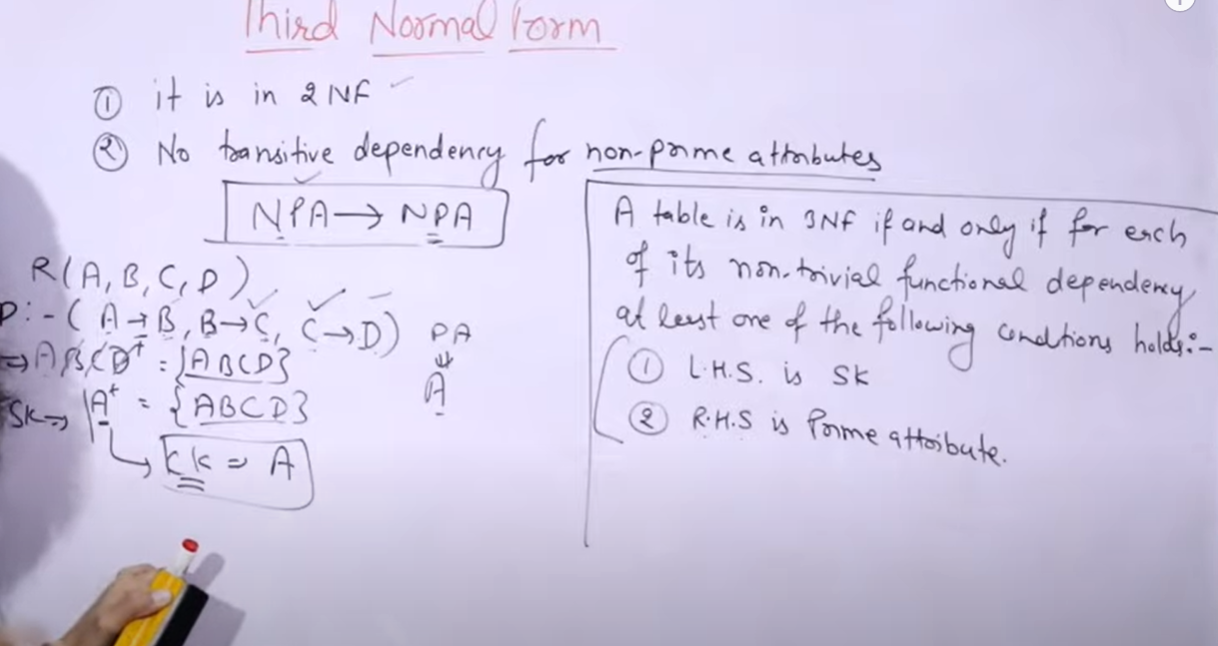 Third Normal Form
① it is in 2NF ✓
② No transitive dependency for non-prime attributes
NPA → NPA
R(A, B, C, D)
D:- (A→B, B→C, C→D)
→ ABCD⁺ = {ABCD}
SK→ A⁺ = {ABCD}
CK ⇒ A
PA
⇓
A
A table is in 3NF if and only if for each
of its non-trivial functional dependency
at least one of the following conditions holds:-
① L.H.S. is SK
② R.H.S is Prime attribute.